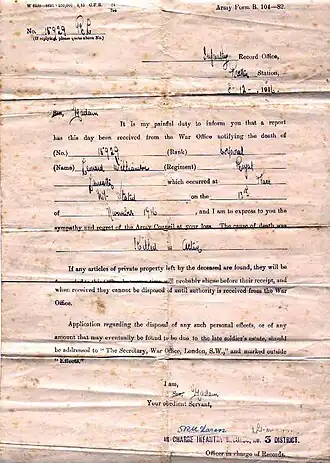 Army Form B. 104—82.
No. 15929
(If replying, please quote above No.)
Infantry Record Office,
Station,
12. 1916
Madam
It is my painful duty to inform you that a report
has this day been received from the War Office notifying the death of
(No.) 15929 (Rank) Corporal
(Name) (Regiment)
which occurred at
Not Stated on the 13th
of November 1916, and I am to express to you the
sympathy and regret of the Army Council at your loss. The cause of death was
Killed in Action
If any articles of private property left by the deceased are found, they will be
time will probably elapse before their receipt, and
when received they cannot be disposed of until authority is received from the War
Office.
Application regarding the disposal of any such personal effects, or of any
amount that may eventually be found to be due to the late soldier's estate, should
be addressed to "The Secretary, War Office, London, S.W.," and marked outside
"Effects."
I am,
Madam
Your obedient Servant,
IN CHARGE INFANTRY No. 3 DISTRICT.
Officer in charge of Records.